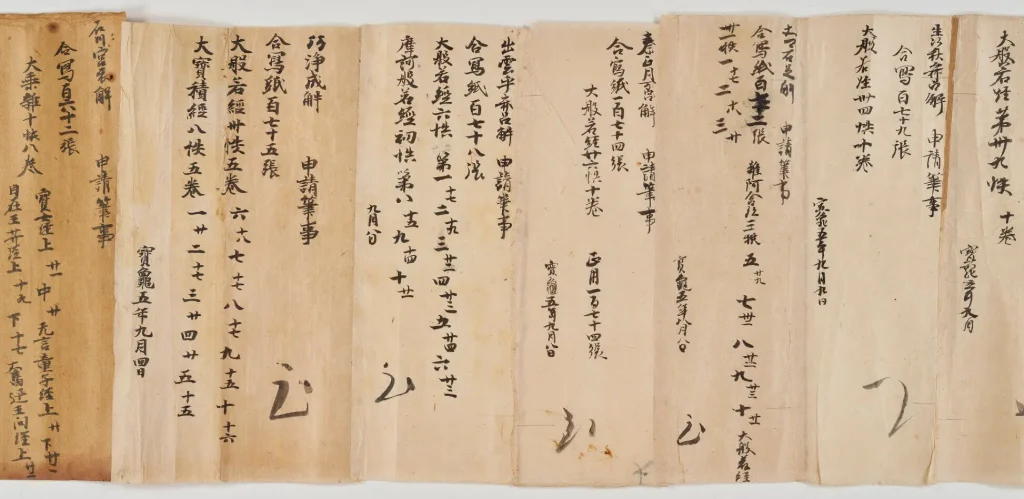 大般若経第卅九帙 十巻
寶龜五年九月
申請筆事
合寫百七十九張
大般若経卅四帙十巻
寶龜五年九月九日
申請筆事
合寫紙百
張
雜阿含経三帙 五 廿九 七 卅一 八 廿二 九 卅三 十 廿 大般若経
卅一帙 一 十七 二 三
寶龜五年九月八日
秦正月麻呂解 申請筆事
合寫紙一百七十四張
大般若経廿六帙十巻 正月一百七十四張
寶龜五年九月八日
出雲乎麻呂解 申請筆事
合寫紙百七十八張
大般若経六帙 第一 十七 二 十九 三 廿一 四 廿三 五 廿四 六 廿三
摩訶般若經初帙 第八 十五 九 十四 十 廿
九月八日
坂浄成解 申請筆事
合寫紙百七十五張
大般若經卅帙五卷 六 十八 七 十七 八 十七 九 十五 十 十六
大寶積經八帙五卷 一 廿 二 十七 三 廿 四 廿 五 十五
寶龜五年九月四日
石川宮衣解 申請筆事
合寫百六十二張
大乗雜十帙八巻 寶女経上 廿一 中 廿 无言童子経上 廿 下 廿一
自在王菩薩経上 十九 下 十七 奮迅王問経上 廿二